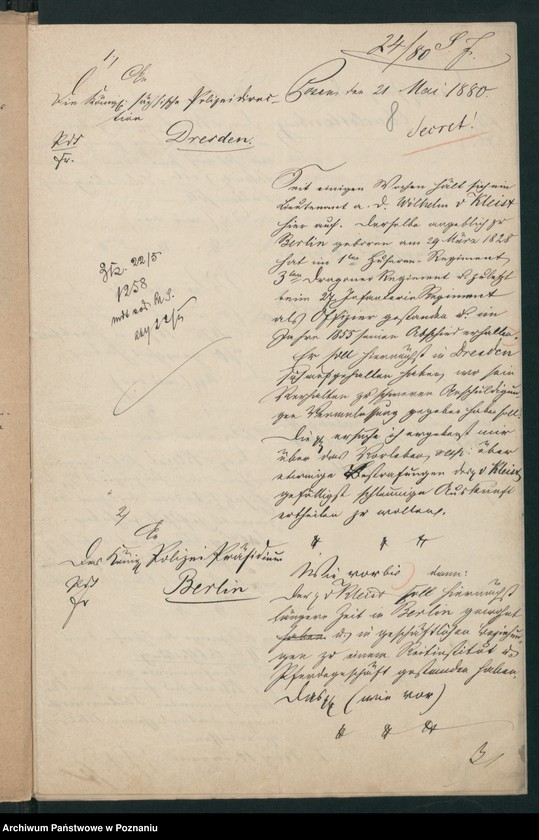 24/80 S. J.
1,
An
die Königl. sächsische Polizeidirec-
tion
Dresden.
Posen, den 21 Mai 1880
8
Secret!
Seit einigen Wochen hält sich ein
Lieutenant a. D. Wilhelm v Kleist
hier auf. Derselbe angeblich zu
Berlin geboren am 29 März 1828
hat im 1ten Husaren-Regiment,
3ten Dragoner Regiment u. zuletzt
beim 27 Infanterie Regiment
als Offizier gestanden u. im
Jahre 1855 seinen Abschied erhalten.
Er soll hiernächst in Dresden
sich aufgehalten haben, wo sein
Verhalten zu schweren Anschuldigun-
gen Veranlassung gegeben haben soll.
Die ersuche ich ergebenst mir
über das Vorleben, resp. über
etwaige Bestrafungen des v Kleist
gefälligst schleunige Auskunft
ertheilen zu wollen.
22/5
1258
2,
An
Das Königl. Polizei Präsidium
Berlin
Wie vor bis dann:
Der v Kleist soll hiernächst
längere Zeit in Berlin gewohnt
haben u. in geschäftlichen Beziehun-
gen zu einem Reitinstitut u.
Pferdegeschäft gestanden haben.
Das (wie vor)
Archiwum Państwowe w Poznaniu